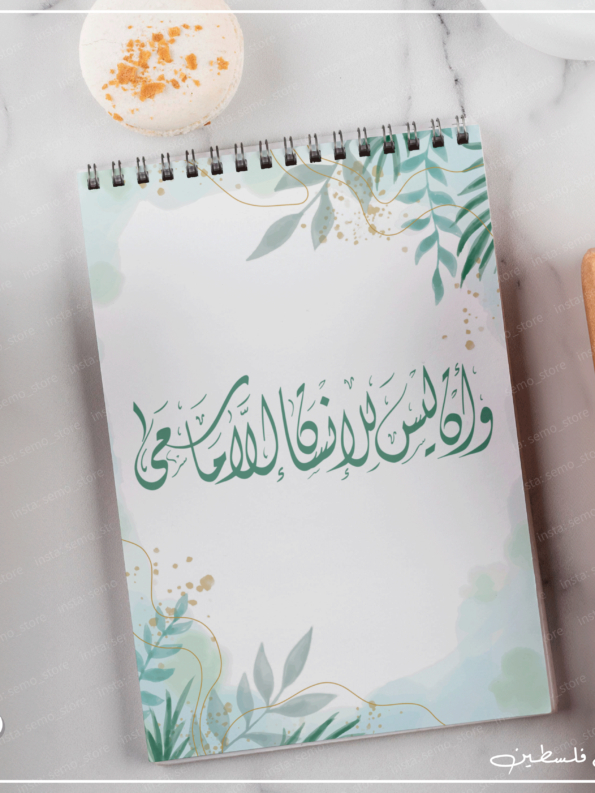 وأن ليس للإنسان إلا ما سعى
insta: semo_store
فلسطين